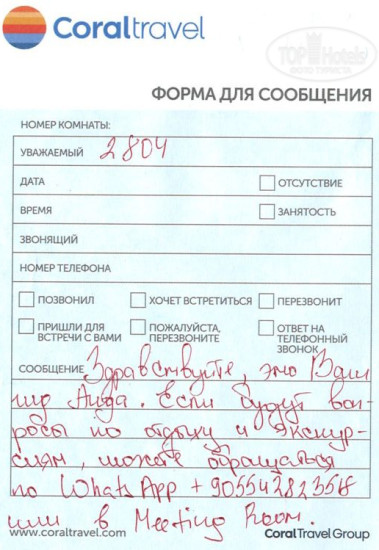 Coraltravel
TOP Hotels
ФОРМА ДЛЯ СООБЩЕНИЯ
НОМЕР КОМНАТЫ:
УВАЖАЕМЫЙ 2804
ДАТА
ОТСУТСТВИЕ
ВРЕМЯ
ЗАНЯТОСТЬ
ЗВОНЯЩИЙ
НОМЕР ТЕЛЕФОНА
ПОЗВОНИЛ
ХОЧЕТ ВСТРЕТИТЬСЯ
ПЕРЕЗВОНИТ
ПРИШЛИ ДЛЯ
ВСТРЕЧИ С ВАМИ
ПОЖАЛУЙСТА,
ПЕРЕЗВОНИТЕ
ОТВЕТ НА
ТЕЛЕФОННЫЙ
ЗВОНОК
СООБЩЕНИЕ Здравствуйте, это Ваш
гид Аида. Если будут воп-
росы по отдыху и экскур-
сиям, можете обращаться
по WhatsApp + 905542823518
или в Meeting Room.
www.coraltravel.com
Coral Travel Group